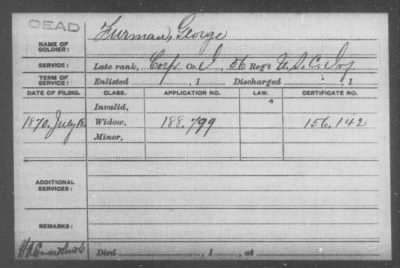 DEAD
Furman, George
NAME OF SOLDIER:
SERVICE: Late rank, Corp Co. I, 56 Reg't U.S.C. Inf
TERM OF SERVICE: Enlisted , 1 Discharged , 1
DATE OF FILING. CLASS. APPLICATION NO. LAW. CERTIFICATE NO.
Invalid,
1870, July 18 Widow, 188.799 156.142
Minor,
ADDITIONAL SERVICES:
REMARKS:
Died , 1 , at